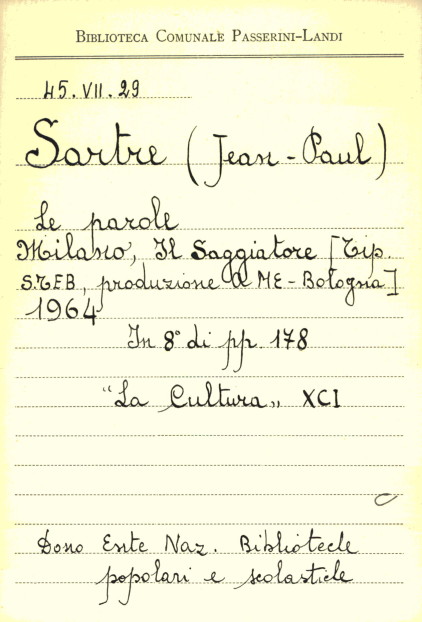 BIBLIOTECA COMUNALE PASSERINI-LANDI
45.VII.29
Sartre (Jean-Paul)
Le parole
Milano, Il Saggiatore [Tip.
S.T.E.B., produzione A ME-Bologna]
1964
In 8° di pp. 178
"La Cultura" XCI
Dono Ente Naz. Biblioteche
popolari e scolastiche